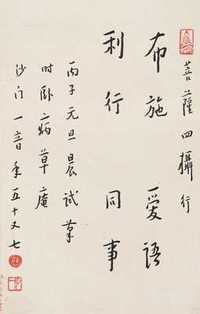 菩薩四攝行
布施 愛語
利行 同事
丙子元旦晨試筆
時臥病草庵
沙門一音年五十又七